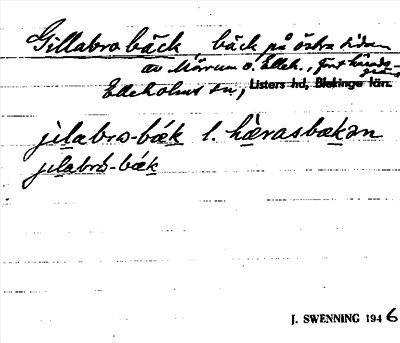 Gillabro bäck, bäck på östra sidan
av Mörrum o. Ellek., förr härads-
gräns
Elleholms sn, Listers hd, Blekinge län.
jilabro-bæk l. hærasbækən
jilabro-bæk
J. SWENNING 1946